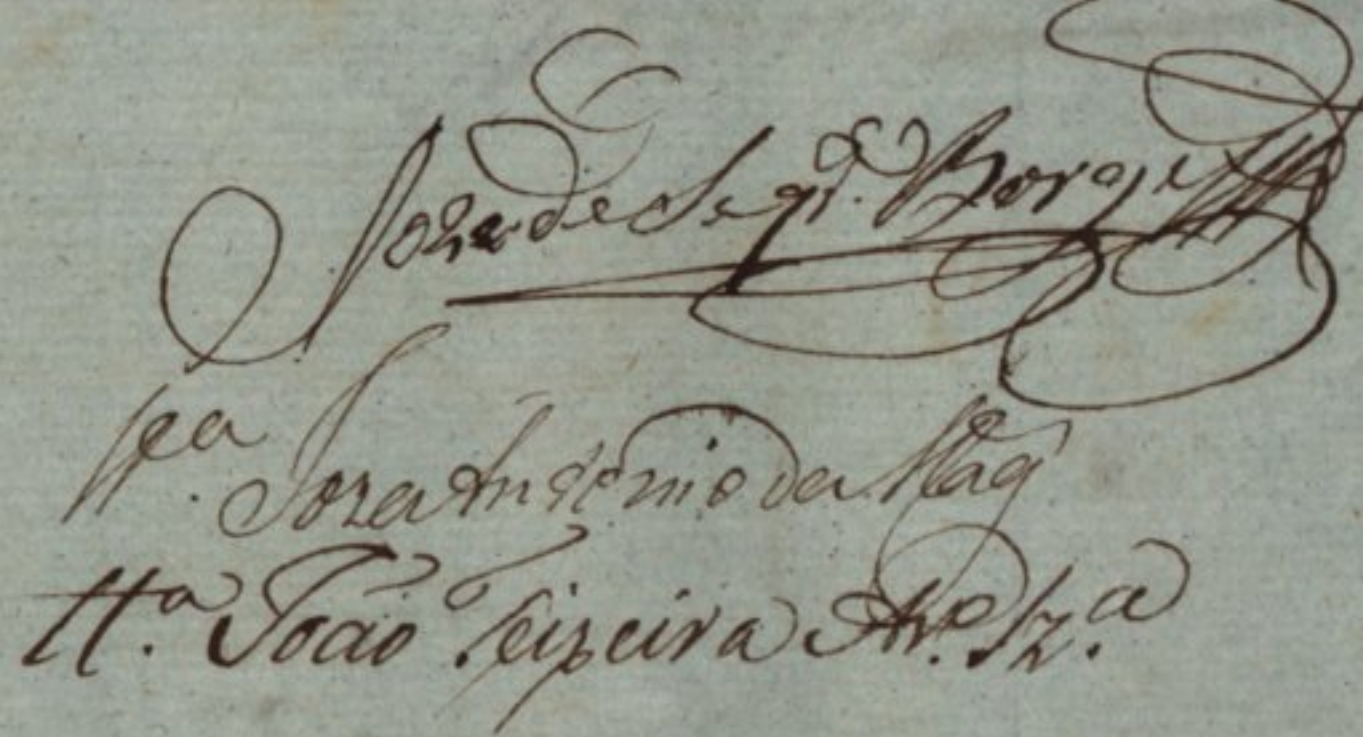 Joze de Seqr.ª Borges
tt.ª Joze Antonio da Mag
tt.ª João Teixeira Alv.e Sz.ª